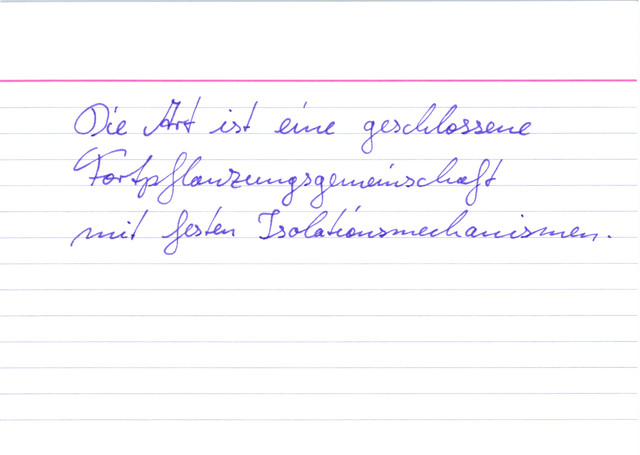 Die Art ist eine geschlossene
Fortpflanzungsgemeinschaft
mit festen Isolationsmechanismen.